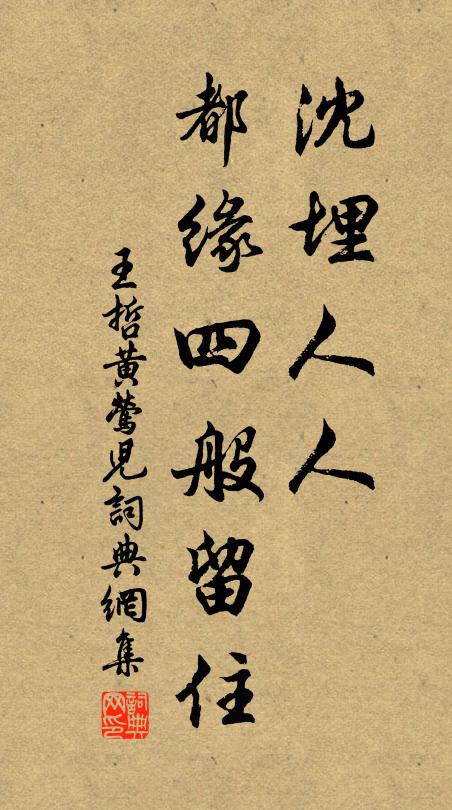 沈埋人人
都緣四般留住
王哲黃鶯兒詞典網集
詞典
网印